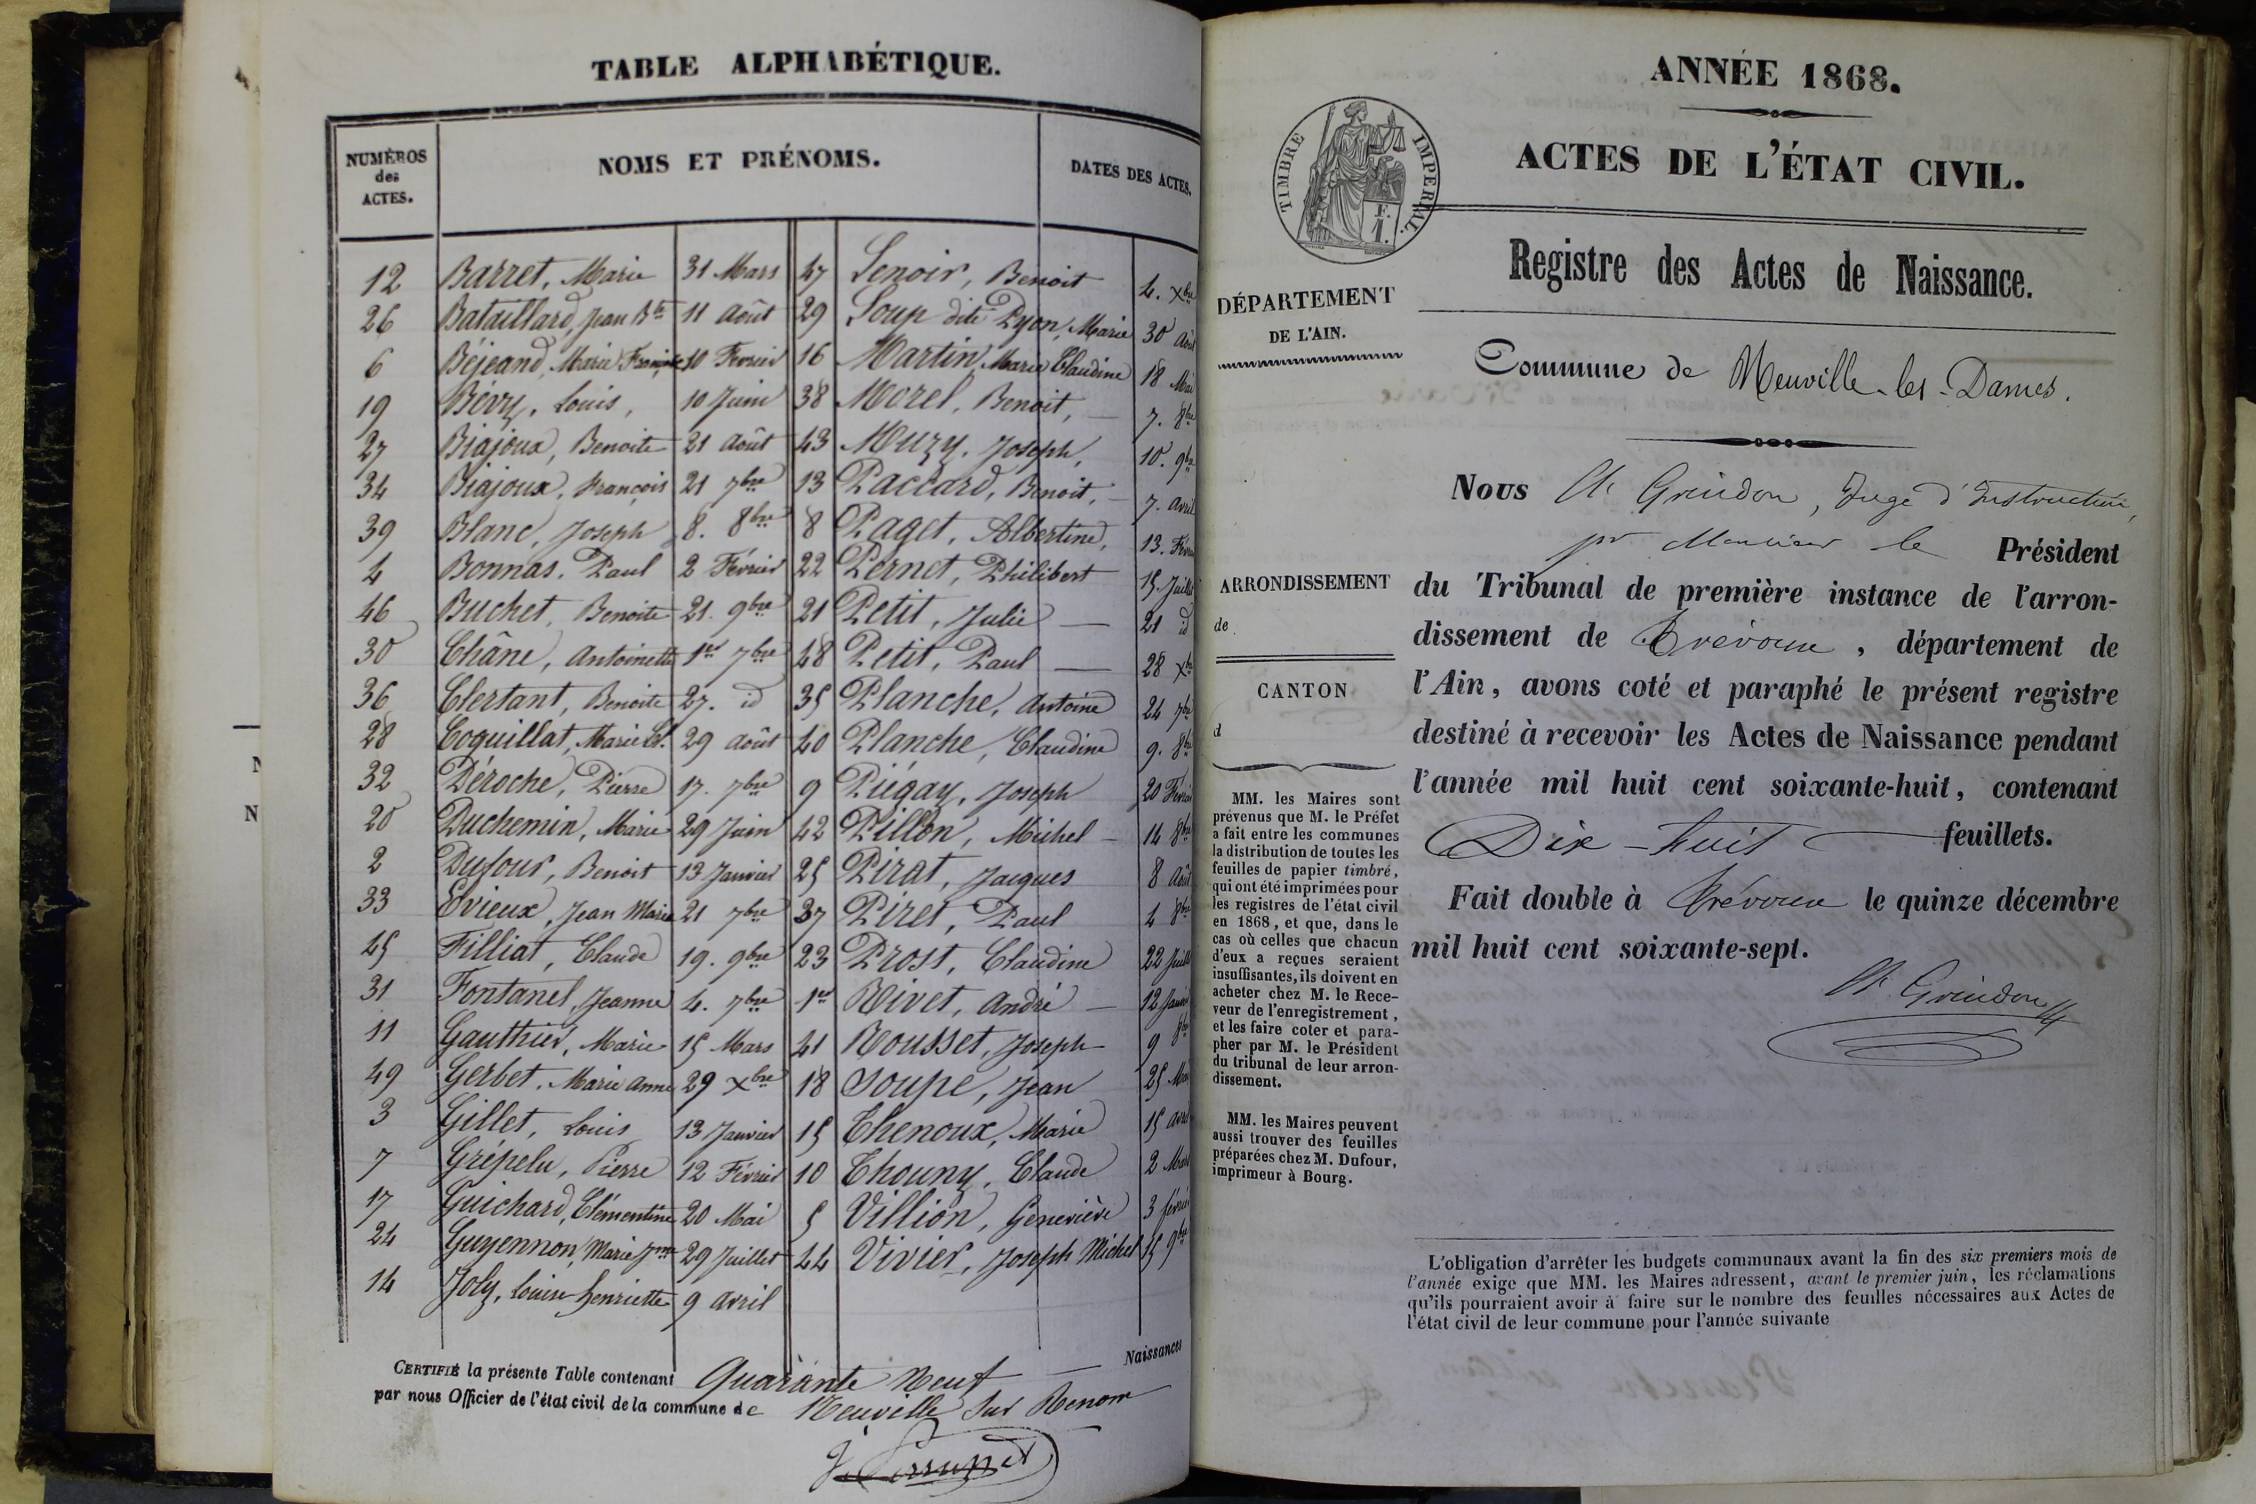 TABLE ALPHABÉTIQUE.
NUMÉROS des ACTES.
NOMS ET PRÉNOMS.
DATES DES ACTES.
12 Barret, Marie 31 Mars
26 Bataillard, Jean Bte 11 Août
6 Béjeand, Marie Françoise 10 Février
19 Bévy, Louis, 10 Juin
27 Biajoux, Benoite 21 Août
34 Biajoux, François 21 7bre
39 Blanc, Joseph 8. 8bre
4 Bonnas, Paul 2 Février
46 Buchet, Benoite 21. 9bre
30 Châne, Antoinette 1er 7bre
36 Clertant, Benoite 27. id
28 Coquillat, Marie Cl. 29 Août
32 Déroche, Pierre 17. 7bre
20 Duchemin, Marie 29 Juin
2 Dufour, Benoit 13 Janvier
33 Evieux, Jean Marie 21 7bre
45 Filliat, Claude 19. 9bre
31 Fontanel, Jeanne 4. 7bre
11 Gauthier, Marie 15 Mars
49 Gerbet, Marie Anne 29 Xbre
3 Gillet, Louis 13 Janvier
7 Grépelu, Pierre 12 Février
17 Guichard, Clémentine 20 Mai
24 Guyennon, Marie Jne 29 Juillet
14 Joly, Louise Henriette 9 avril
47 Lenoir, Benoit 4. Xbre
29 Loup dite Dyon, Marie 30 Août
16 Martin, Marie Claudine 18 Mai
38 Morel, Benoit, 7. 8bre
43 Muzy, Joseph, 10. 9bre
13 Paccard, Benoit, 7. avril
8 Paget, Albertine, 13. Février
22 Pernet, Philibert 15. Juillet
21 Petit, Julie 21 id
48 Petit, Paul 28 Xbre
35 Planche, Antoine 24 7bre
40 Planche, Claudine 9. 8bre
9 Piégay, Joseph 20 Février
42 Pillon, Michel 14 8bre
25 Pirat, Jacques 8 Août
37 Piret, Paul 4 8bre
23 Prost, Claudine 22 Juillet
1er Rivet, André 12 Janvier
41 Rousset, Joseph 9 8bre
18 Soupe, Jean 25 Mai
15 Thenoux, Marie 15 avril
10 Thouny, Claude 2 Mars
5 Villion, Geneviève 3 février
44 Vivier, Joseph Michel 15 9bre
CERTIFIÉ la présente Table contenant Quarante Neuf Naissances
par nous Officier de l'état civil de la commune de Neuville sur Renom
ANNÉE 1868.
ACTES DE L'ÉTAT CIVIL.
TIMBRE IMPÉRIAL.
F.
1.
Registre des Actes de Naissance.
DÉPARTEMENT
DE L'AIN.
Commune de Neuville-les-Dames.
ARRONDISSEMENT
de
CANTON
d
MM. les Maires sont
prévenus que M. le Préfet
a fait entre les communes
la distribution de toutes les
feuilles de papier timbré,
qui ont été imprimées pour
les registres de l'état civil
en 1868, et que, dans le
cas où celles que chacun
d'eux a reçues seraient
insuffisantes, ils doivent en
acheter chez M. le Rece-
veur de l'enregistrement,
et les faire coter et para-
pher par M. le Président
du tribunal de leur arron-
dissement.
MM. les Maires peuvent
aussi trouver des feuilles
préparées chez M. Dufour,
imprimeur à Bourg.
Nous Ch Greindon, Juge d'Instruction,
pr Monsieur le Président
du Tribunal de première instance de l'arron-
dissement de Trévoux, département de
l'Ain, avons coté et paraphé le présent registre
destiné à recevoir les Actes de Naissance pendant
l'année mil huit cent soixante-huit, contenant
Dix-huit feuillets.
Fait double à Trévoux le quinze décembre
mil huit cent soixante-sept.
Ch Greindon
L'obligation d'arrêter les budgets communaux avant la fin des six premiers mois de
l'année exige que MM. les Maires adressent, avant le premier juin, les réclamations
qu'ils pourraient avoir à faire sur le nombre des feuilles nécessaires aux Actes de
l'état civil de leur commune pour l'année suivante